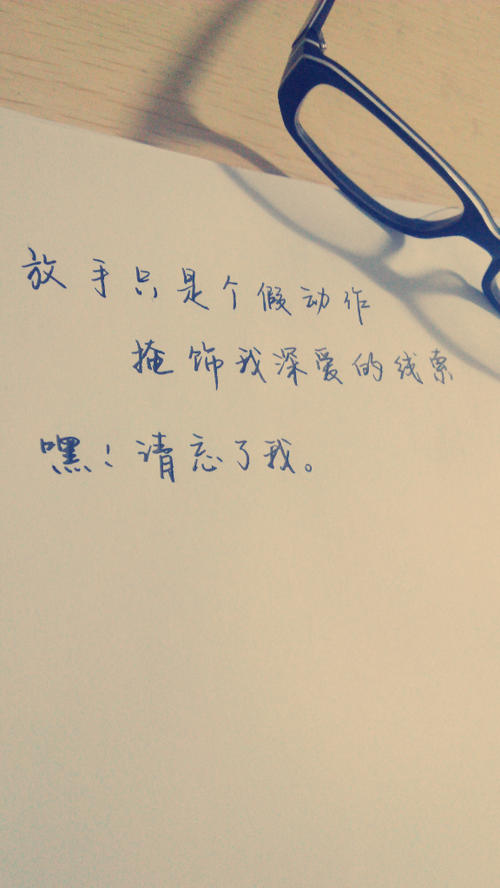 放手只是个假动作
掩饰我深爱的线索
嘿！请忘了我。